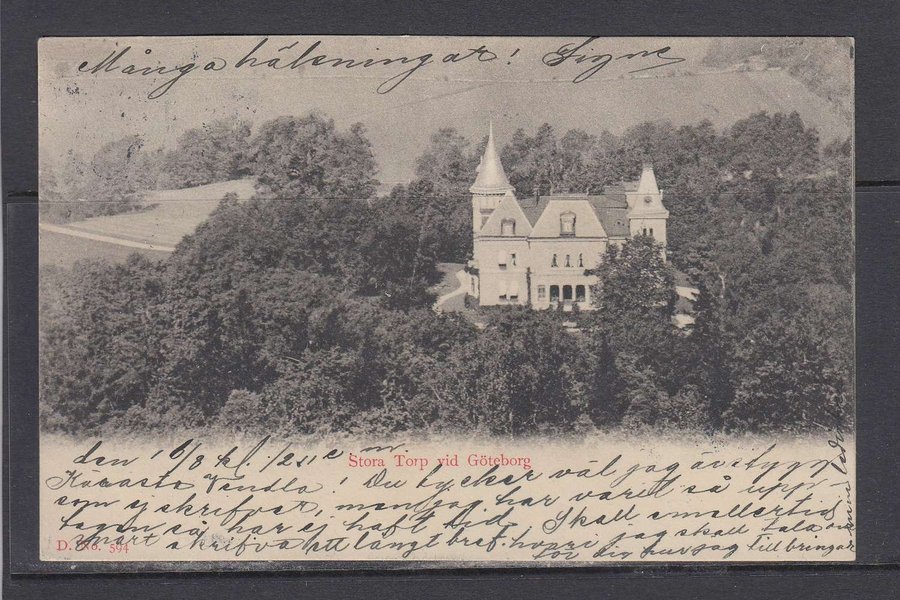 Många hälsningar! Signe
den 16/8 kl. 12
Stora Torp vid Göteborg
Käraste Vendla! Du tycker väl jag är stygg
som ej skrifver, men jag har varit så upp-
tagen så har ej haft tid. Skall emellertid
snart skrifva ett långt bref hvari jag skall tala om
för dig hur jag tillbringar
min
D. No. 594